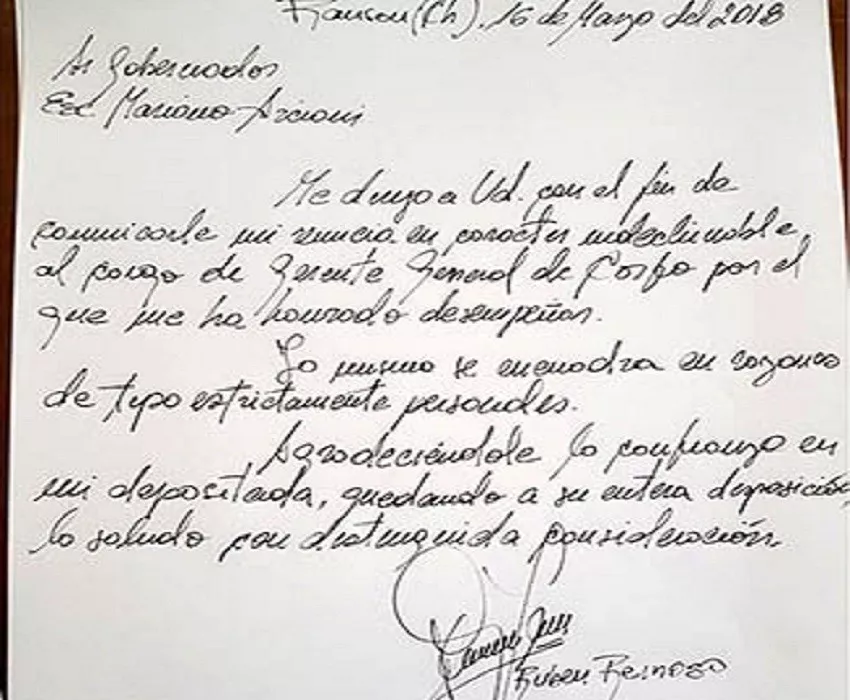 Rawson (Ch), 16 de Marzo del 2018
Sr Gobernador
Esc Mariano Arcioni
Me dirijo a Ud. con el fin de
comunicarle mi renuncia en caracter indeclinable,
al cargo de Gerente General de Corfo por el
que me ha honrado desempeñar.
Lo mismo se encuadra en razones
de tipo estrictamente personales.
Agradeciéndole la confianza en
mi depositada, quedando a su entera disposición,
lo saludo con distinguida consideración.
Ruben Reinoso